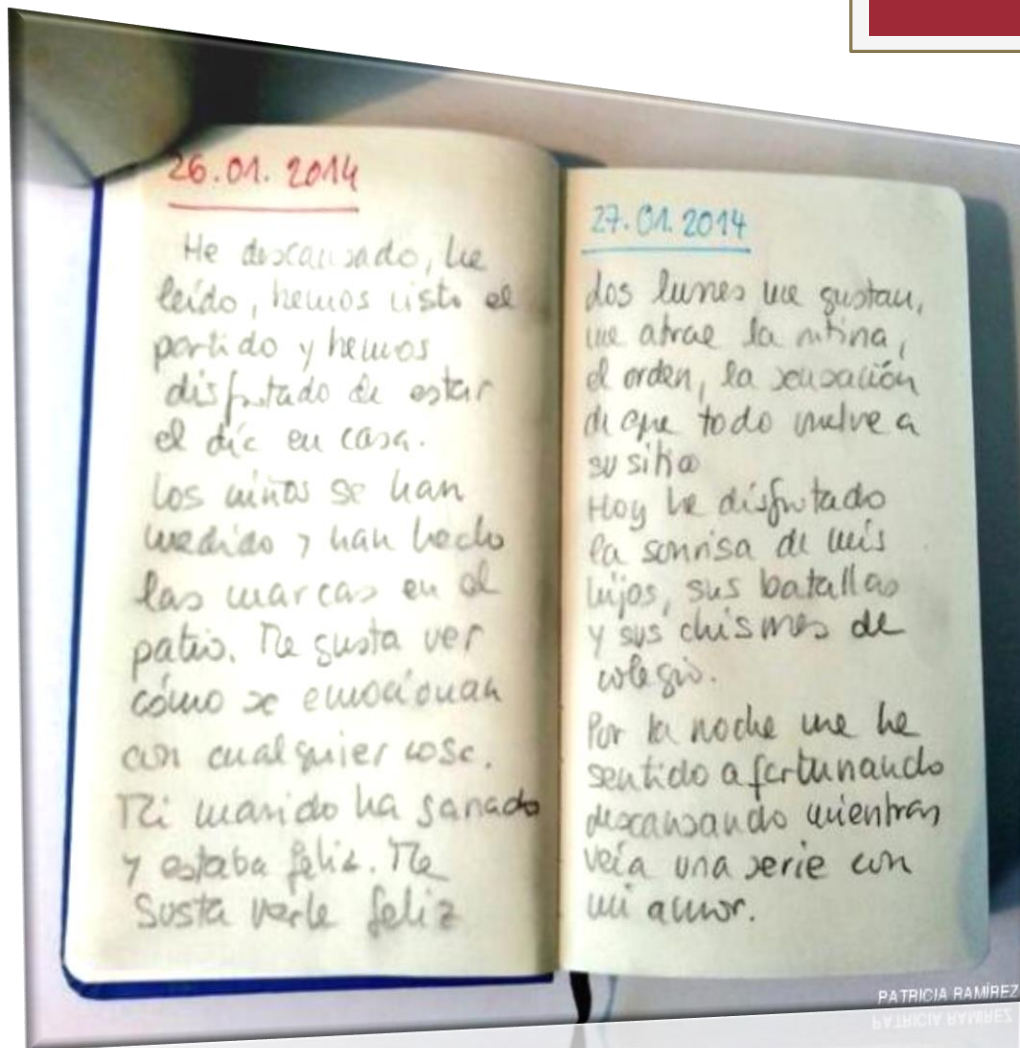 26.01.2014
He descansado, he
leído, hemos visto el
partido y hemos
disfrutado de estar
el día en casa.
Los niños se han
medido y han hecho
las marcas en el
patio. Me gusta ver
cómo se emocionan
con cualquier cosa.
Mi marido ha ganado
y estaba feliz. Me
gusta verle feliz
27.01.2014
Los lunes me gustan,
me atrae la rutina,
el orden, la sensación
de que todo vuelve a
su sitio
Hoy he disfrutado
la sonrisa de mis
hijos, sus batallas
y sus chismes de
colegio.
Por la noche me he
sentido afortunando
descansando mientras
veía una serie con
mi amor.
PATRICIA RAMÍREZ